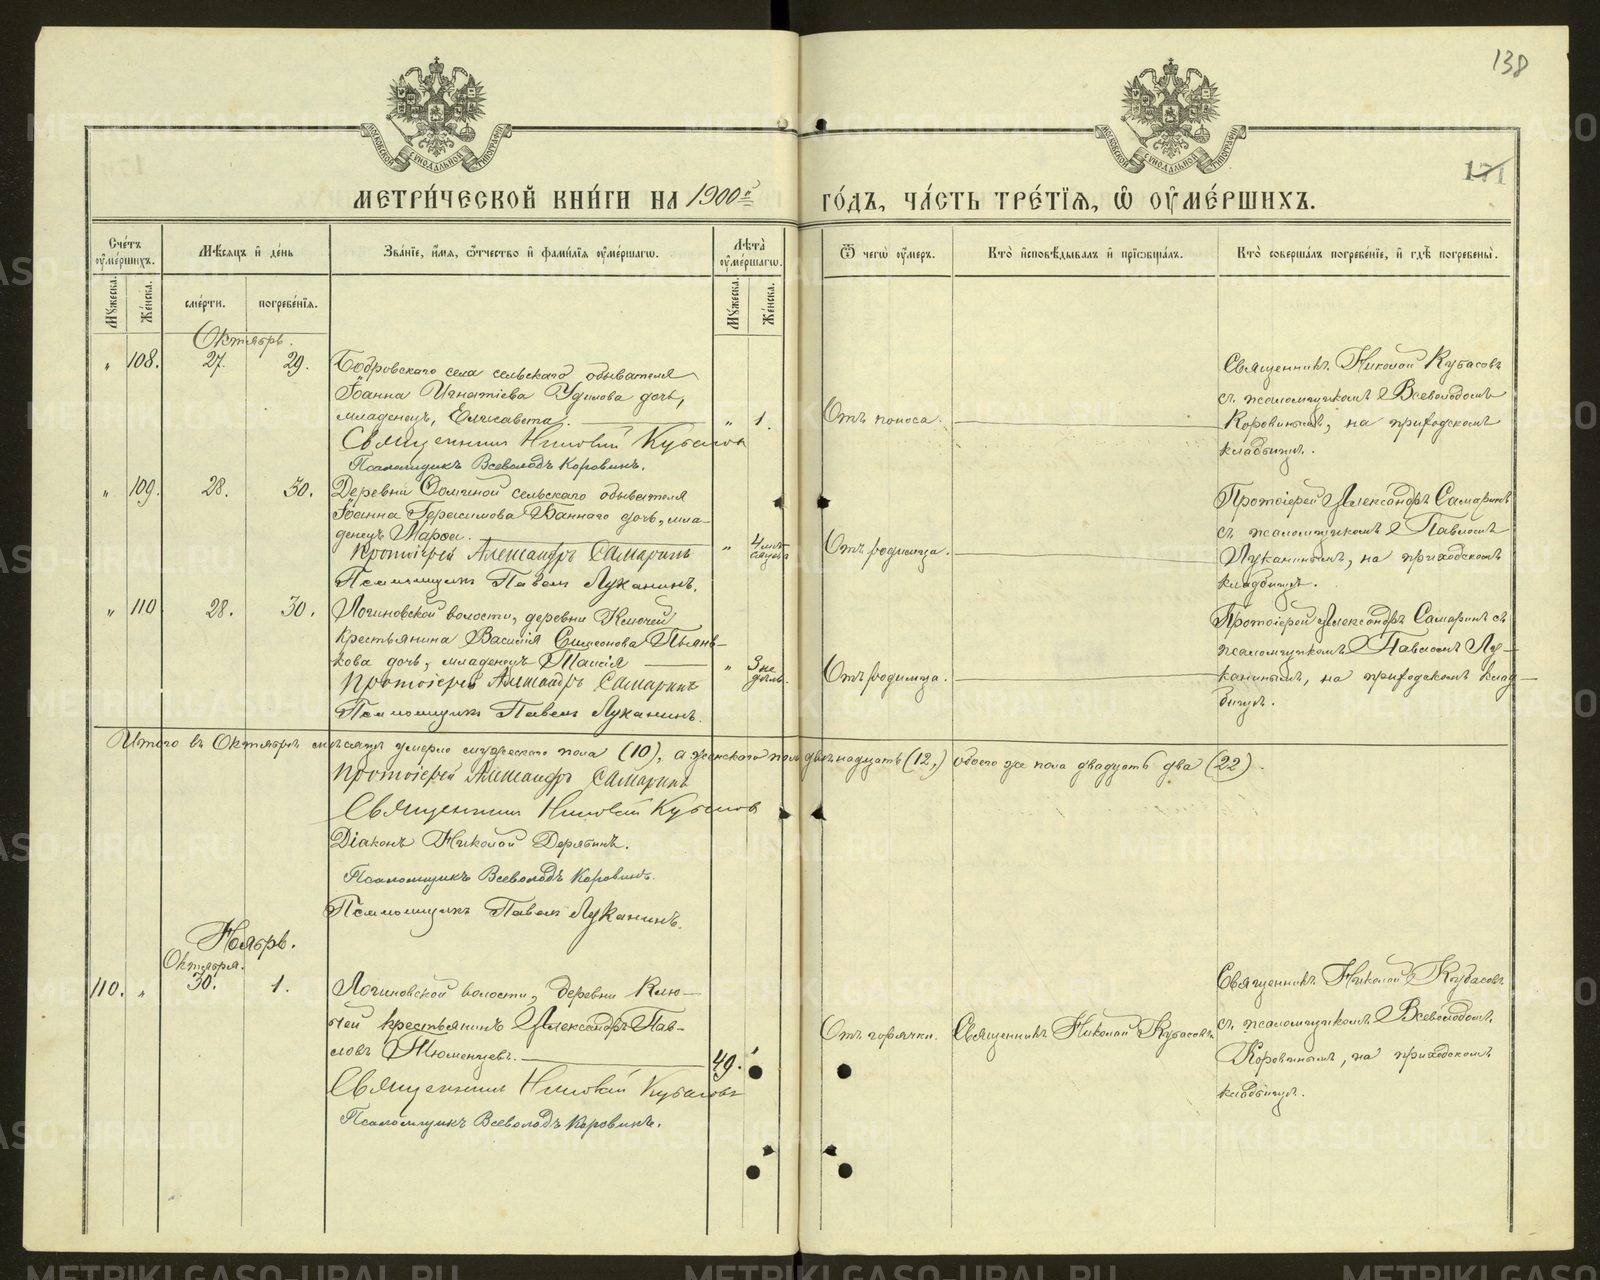 138
171
МОСКОВСКОЙ СѴНОДАЛЬНОЙ ТИПОГРАФІИ
МОСКОВСКОЙ СѴНОДАЛЬНОЙ ТИПОГРАФІИ
МЕТРИ́ЧЕСКОЙ КНИ́ГИ НА 1900й ГО́ДЪ, ЧА́СТЬ ТРЕ́ТЇѦ, Ѿ ОУМЕ́РШИХЪ.
Сче́тъ оуме́ршихъ.
Мѣсяцъ и де́нь
Зва́нїе, и́мя, ѻ́тчество и фами́лїя оуме́ршагѡ.
Лѣта̀ оуме́ршагѡ.
Ѿ чегѡ̀ оу́меръ.
Кто̀ и҆сповѣ́дывалъ и҆ прїѡбща́лъ.
Кто̀ соверша́лъ погребе́нїе, и҆ гдѣ̀ погребены̀.
Му́жеска.
Же́нска.
сме́рти.
погребе́нїя.
Му́жеска.
Же́нска.
Октябрь.
" 108. 27. 29. Бобровскаго села сельскаго обывателя
Іоанна Игнатіева Удилова дочь,
младенецъ, Елисавета. " 1. Отъ поноса.
Священникъ Николай Кубасовъ
Псаломщикъ Всеволодъ Коровинъ.
Священникъ Николай Кубасовъ
съ псаломщикомъ Всеволодомъ
Коровинымъ, на приходскомъ
кладбищѣ.
" 109. 28. 30. Деревни Фоминой сельскаго обывателя
Іоанна Герасимова Баннаго дочь, мла-
денецъ Марѳа. " 4 мѣсяцевъ Отъ родимца.
Протоіерей Александръ Самаринъ
Псаломщикъ Павелъ Луканинъ.
Протоіерей Александръ Самаринъ
съ псаломщикомъ Павломъ
Луканинымъ, на приходскомъ
кладбищѣ.
" 110 28. 30. Логиновской волости, деревни Ключей
крестьянина Василія Симеонова Пьянь-
кова дочь, младенецъ Таисія " 3 недѣль. Отъ родимца.
Протоіерей Александръ Самаринъ
Псаломщикъ Павелъ Луканинъ.
Протоіерей Александръ Самаринъ съ
псаломщикомъ Павломъ Лу-
канинымъ, на приходскомъ клад-
бищѣ.
Итого въ Октябрѣ мѣсяцѣ умерло мужескаго пола (10), а женскаго пола двѣнадцать (12,) обоего же пола двадцать два (22).
Протоіерей Александръ Самаринъ
Священникъ Николай Кубасовъ
Діаконъ Николай Дерябинъ.
Псаломщикъ Всеволодъ Коровинъ.
Псаломщикъ Павелъ Луканинъ.
Ноябрь.
Октября.
110. " 30. 1. Логиновской волости, деревни Клю-
чей крестьянинъ Александръ Пав-
ловъ Тюменцевъ. 49. Отъ горячки. Священникъ Николай Кубасовъ.
Священникъ Николай Кубасовъ
Псаломщикъ Всеволодъ Коровинъ.
Священникъ Николай Кубасовъ
съ псаломщикомъ Всеволодомъ
Коровинымъ, на приходскомъ
кладбищѣ.
METRIKI.GASO-URAL.RU